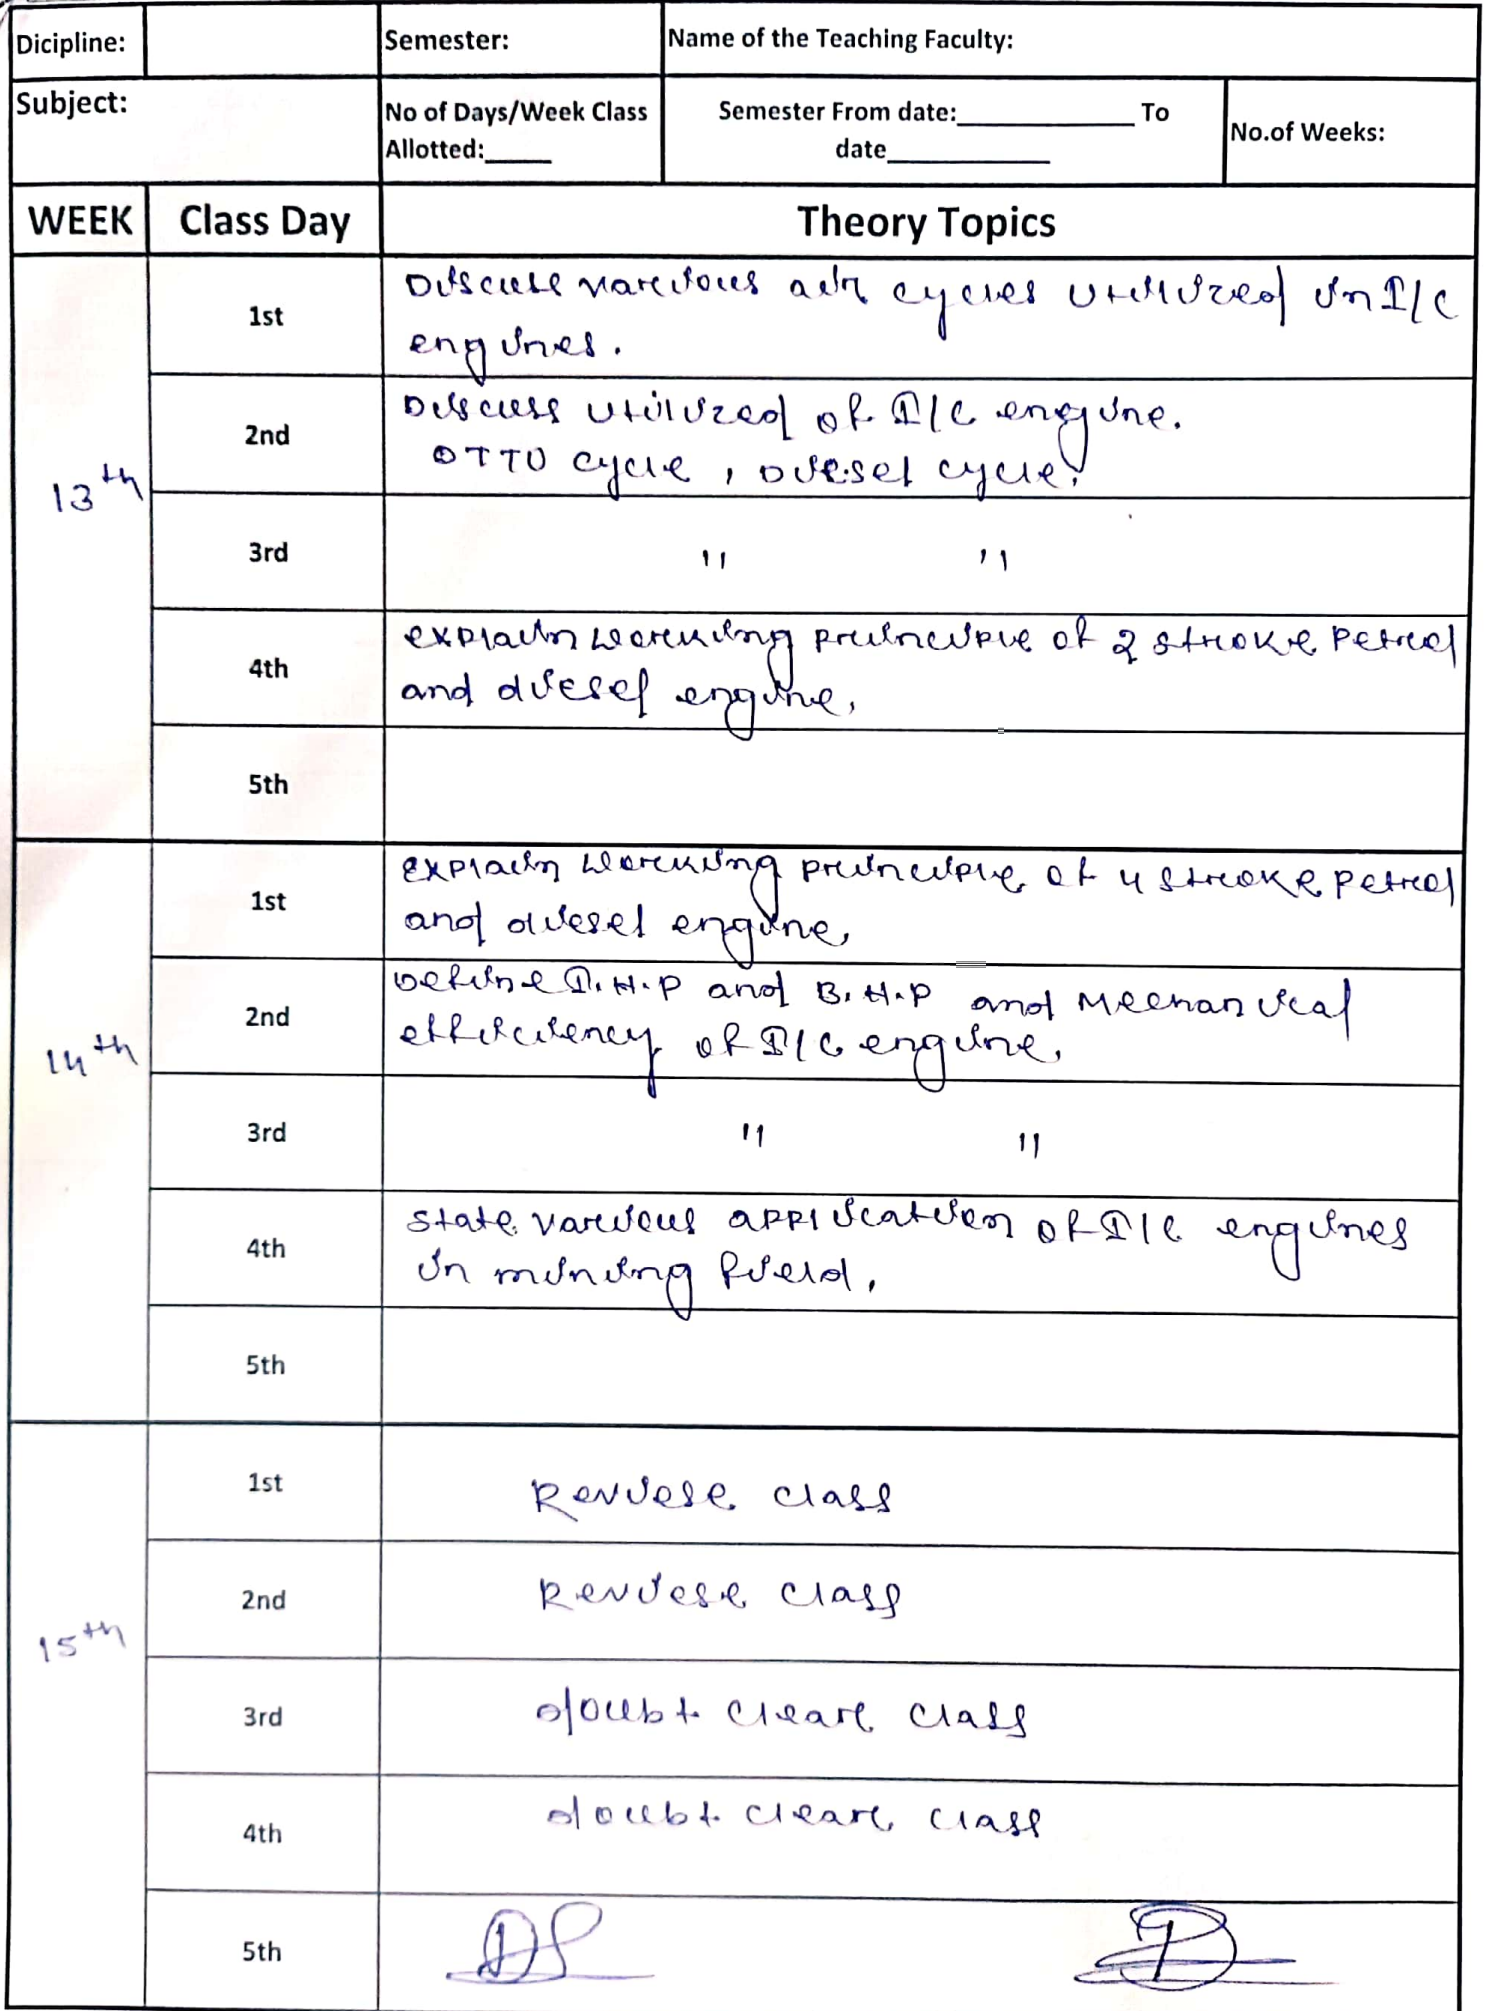 Dicipline:
Semester:
Name of the Teaching Faculty:
Subject:
No of Days/Week Class
Allotted:_____
Semester From date:______________ To
date_____________
No.of Weeks:
WEEK
Class Day
Theory Topics
13th
1st
Discuss various air cycles utilized in I/C
engines.
2nd
Discuss utilized of I/C engine.
OTTO cycle, Diesel cycle.
3rd
" "
4th
explain working principle of 2 stroke petrol
and diesel engine.
5th
14th
1st
explain working principle of 4 stroke petrol
and diesel engine,
2nd
Define I.H.P and B.H.P and Mechanical
efficiency of I/C engine.
3rd
" "
4th
state various application of I/C engines
in mining field.
5th
15th
1st
Reviese class
2nd
Reviese class
3rd
doubt clear class
4th
doubt clear class
5th